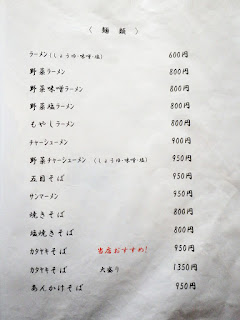 〈 麺類 〉
ラーメン(しょうゆ・味噌・塩) 600円
野菜ラーメン 800円
野菜味噌ラーメン 800円
野菜塩ラーメン 800円
もやしラーメン 800円
チャーシューメン 900円
野菜チャーシューメン (しょうゆ・味噌・塩) 950円
五目そば 950円
サンマーメン 950円
焼きそば 800円
塩焼きそば 800円
カタヤキそば 当店おすすめ! 950円
カタヤキそば 大盛り 1350円
あんかけそば 950円